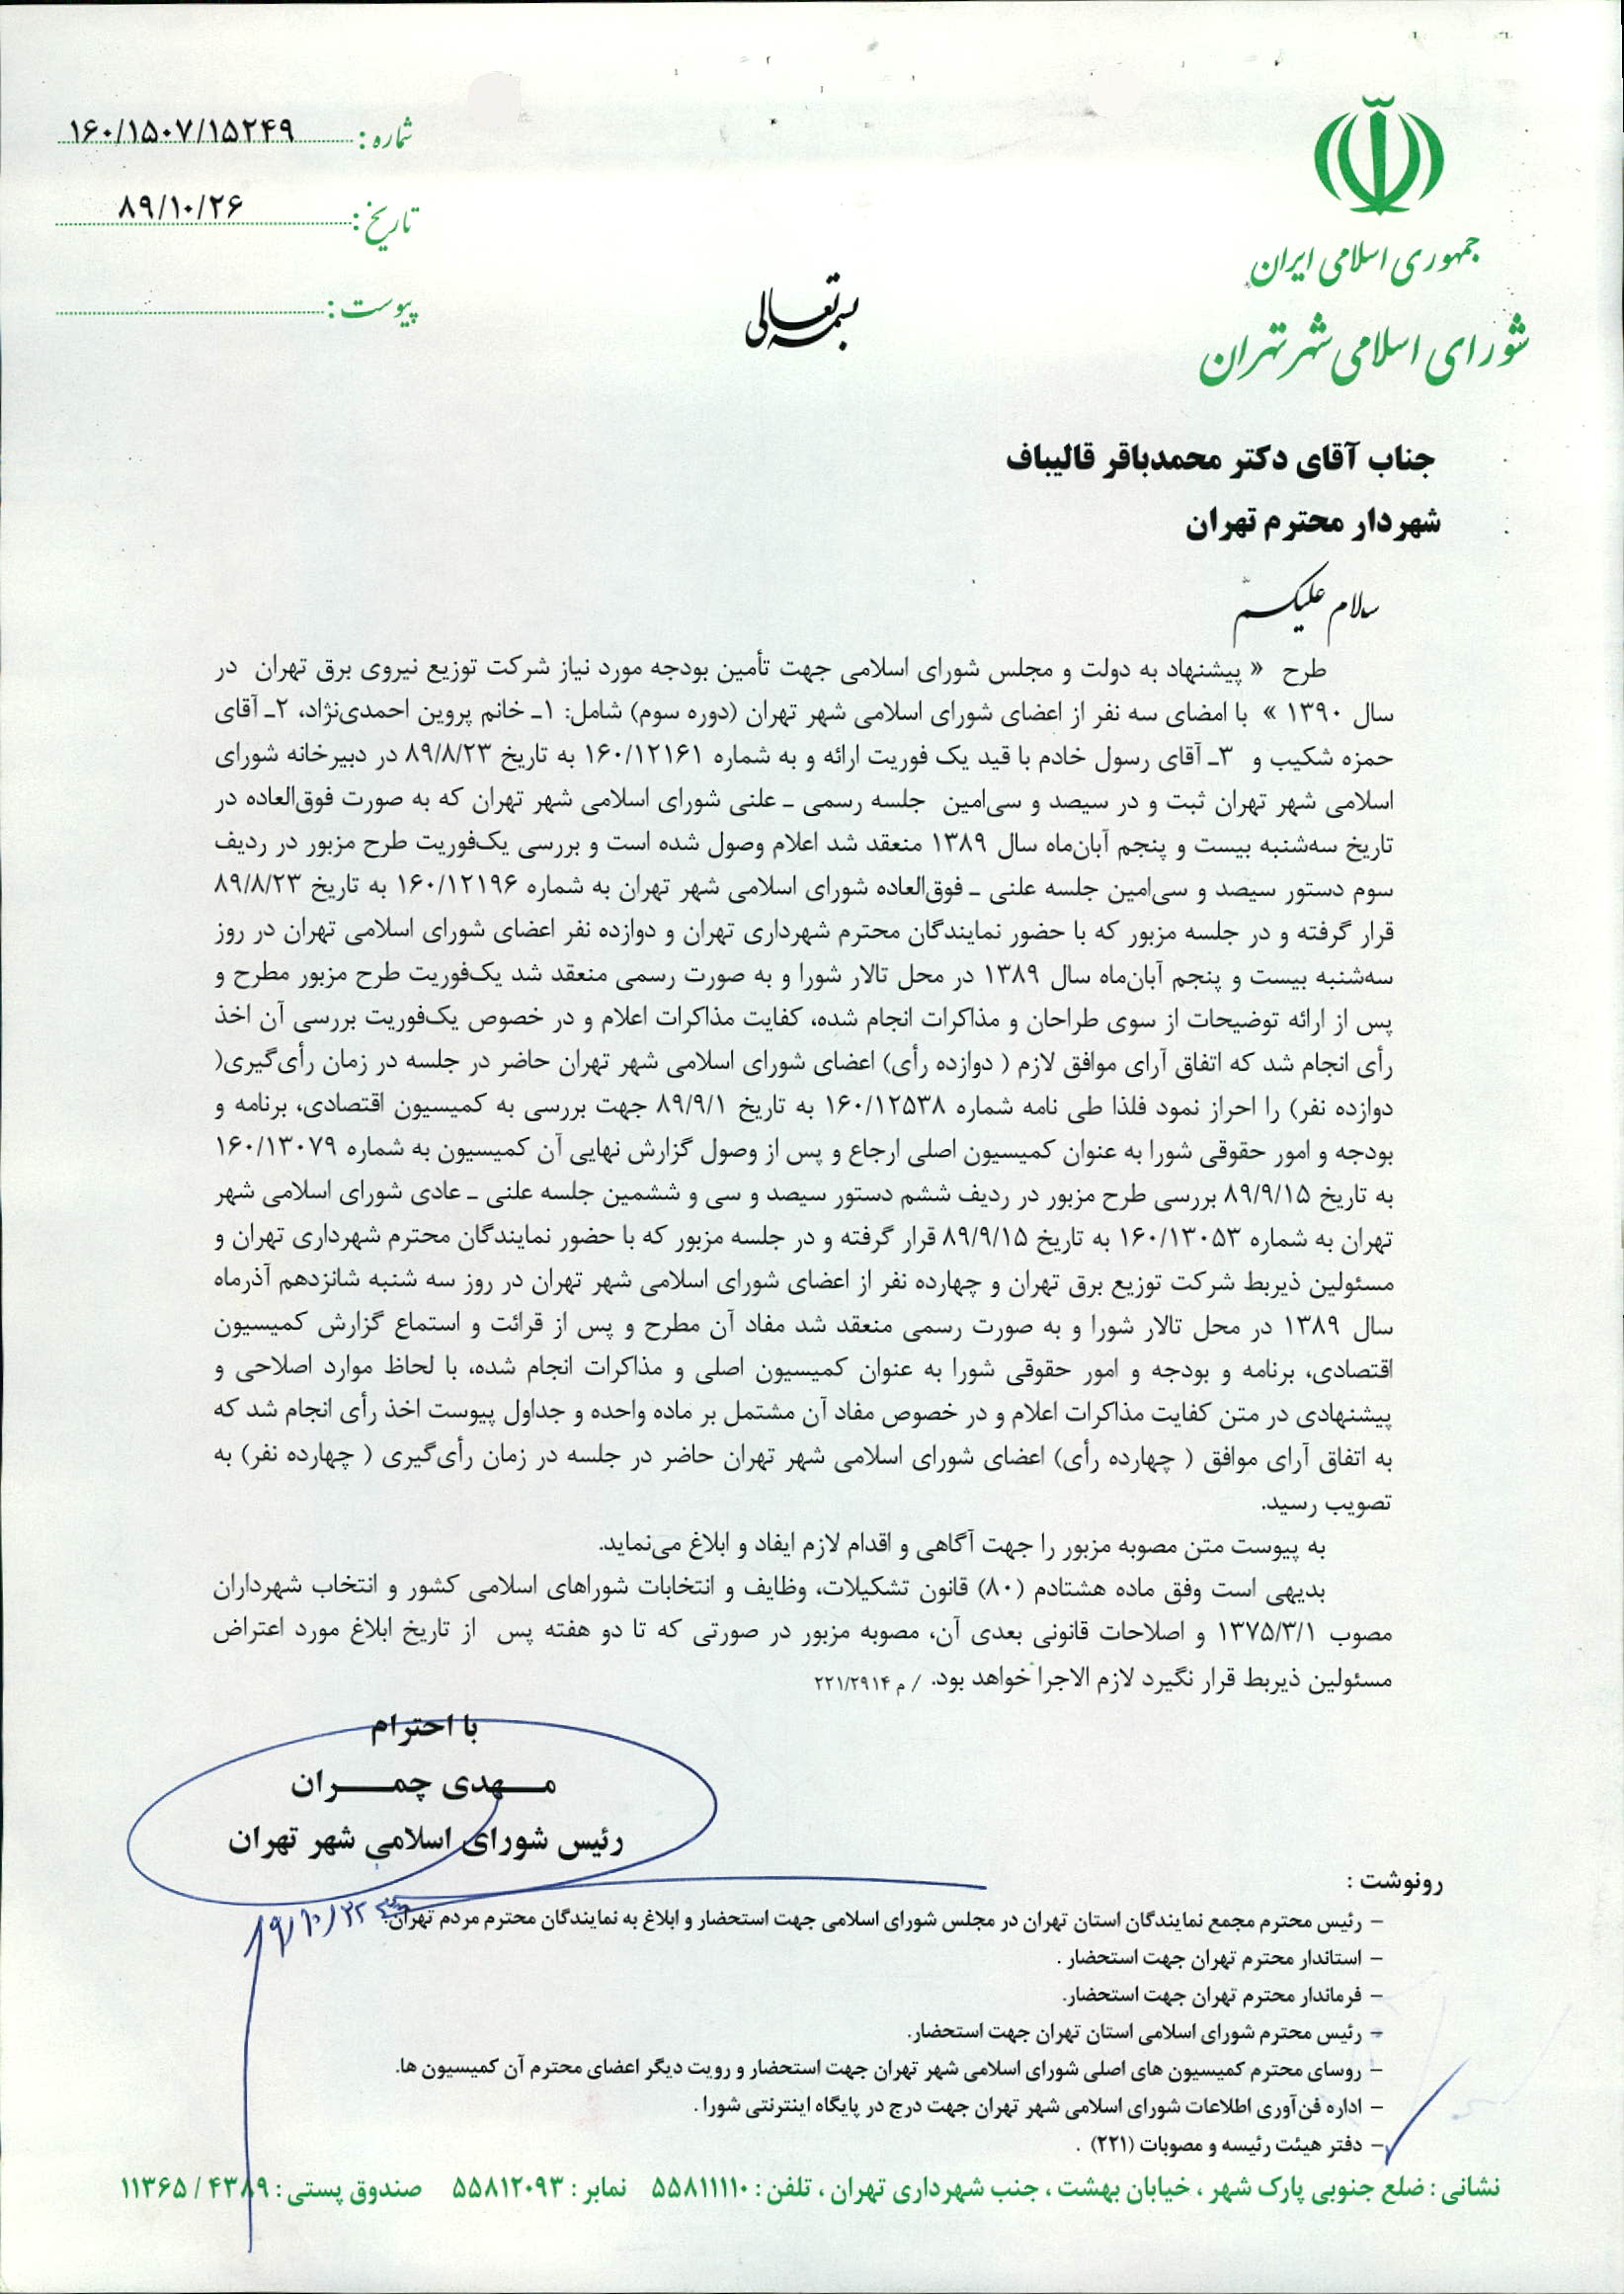 جمهوری اسلامی ایران
شورای اسلامی شهر تهران
شماره: ۱۶۰/۱۵۰۷/۱۵۲۴۹
تاریخ: ۸۹/۱۰/۲۶
پیوست:
بسمه تعالی
جناب آقای دکتر محمدباقر قالیباف
شهردار محترم تهران
سلام علیکم
طرح « پیشنهاد به دولت و مجلس شورای اسلامی جهت تأمین بودجه مورد نیاز شرکت توزیع نیروی برق تهران در
سال ۱۳۹۰ » با امضای سه نفر از اعضای شورای اسلامی شهر تهران (دوره سوم) شامل: ۱ـ خانم پروین احمدی‌نژاد، ۲ـ آقای
حمزه شکیب و ۳ـ آقای رسول خادم با قید یک فوریت ارائه و به شماره ۱۶۰/۱۲۱۶۱ به تاریخ ۸۹/۸/۲۳ در دبیرخانه شورای
اسلامی شهر تهران ثبت و در سیصد و سی‌امین جلسه رسمی ـ علنی شورای اسلامی شهر تهران که به صورت فوق‌العاده در
تاریخ سه‌شنبه بیست و پنجم آبان‌ماه سال ۱۳۸۹ منعقد شد اعلام وصول شده است و بررسی یک‌فوریت طرح مزبور در ردیف
سوم دستور سیصد و سی‌امین جلسه علنی ـ فوق‌العاده شورای اسلامی شهر تهران به شماره ۱۶۰/۱۲۱۹۶ به تاریخ ۸۹/۸/۲۳
قرار گرفته و در جلسه مزبور که با حضور نمایندگان محترم شهرداری تهران و دوازده نفر اعضای شورای اسلامی تهران در روز
سه‌شنبه بیست و پنجم آبان‌ماه سال ۱۳۸۹ در محل تالار شورا و به صورت رسمی منعقد شد یک‌فوریت طرح مزبور مطرح و
پس از ارائه توضیحات از سوی طراحان و مذاکرات انجام شده، کفایت مذاکرات اعلام و در خصوص یک‌فوریت بررسی آن اخذ
رأی انجام شد که اتفاق آرای موافق لازم ( دوازده رأی) اعضای شورای اسلامی شهر تهران حاضر در جلسه در زمان رأی‌گیری(
دوازده نفر) را احراز نمود فلذا طی نامه شماره ۱۶۰/۱۲۵۳۸ به تاریخ ۸۹/۹/۱ جهت بررسی به کمیسیون اقتصادی، برنامه و
بودجه و امور حقوقی شورا به عنوان کمیسیون اصلی ارجاع و پس از وصول گزارش نهایی آن کمیسیون به شماره ۱۶۰/۱۳۰۷۹
به تاریخ ۸۹/۹/۱۵ بررسی طرح مزبور در ردیف ششم دستور سیصد و سی و ششمین جلسه علنی ـ عادی شورای اسلامی شهر
تهران به شماره ۱۶۰/۱۳۰۵۳ به تاریخ ۸۹/۹/۱۵ قرار گرفته و در جلسه مزبور که با حضور نمایندگان محترم شهرداری تهران و
مسئولین ذیربط شرکت توزیع برق تهران و چهارده نفر از اعضای شورای اسلامی شهر تهران در روز سه شنبه شانزدهم آذرماه
سال ۱۳۸۹ در محل تالار شورا و به صورت رسمی منعقد شد مفاد آن مطرح و پس از قرائت و استماع گزارش کمیسیون
اقتصادی، برنامه و بودجه و امور حقوقی شورا به عنوان کمیسیون اصلی و مذاکرات انجام شده، با لحاظ موارد اصلاحی و
پیشنهادی در متن کفایت مذاکرات اعلام و در خصوص مفاد آن مشتمل بر ماده واحده و جداول پیوست اخذ رأی انجام شد که
به اتفاق آرای موافق ( چهارده رأی) اعضای شورای اسلامی شهر تهران حاضر در جلسه در زمان رأی‌گیری ( چهارده نفر) به
تصویب رسید.
به پیوست متن مصوبه مزبور را جهت آگاهی و اقدام لازم ایفاد و ابلاغ می‌نماید.
بدیهی است وفق ماده هشتادم (۸۰) قانون تشکیلات، وظایف و انتخابات شوراهای اسلامی کشور و انتخاب شهرداران
مصوب ۱۳۷۵/۳/۱ و اصلاحات قانونی بعدی آن، مصوبه مزبور در صورتی که تا دو هفته پس از تاریخ ابلاغ مورد اعتراض
مسئولین ذیربط قرار نگیرد لازم الاجرا خواهد بود. / م ۲۲۱/۲۹۱۴
با احترام
مـهدی چمـران
رئیس شورای اسلامی شهر تهران
رونوشت :
– رئیس محترم مجمع نمایندگان استان تهران در مجلس شورای اسلامی جهت استحضار و ابلاغ به نمایندگان محترم مردم تهران
– استاندار محترم تهران جهت استحضار .
– فرماندار محترم تهران جهت استحضار.
– رئیس محترم شورای اسلامی استان تهران جهت استحضار.
– روسای محترم کمیسیون های اصلی شورای اسلامی شهر تهران جهت استحضار و رویت دیگر اعضای محترم آن کمیسیون ها.
– اداره فن‌آوری اطلاعات شورای اسلامی شهر تهران جهت درج در پایگاه اینترنتی شورا .
– دفتر هیئت رئیسه و مصوبات (۲۲۱) .
نشانی : ضلع جنوبی پارک شهر ، خیابان بهشت ، جنب شهرداری تهران ، تلفن : ۵۵۸۱۱۱۱۰ نمابر : ۵۵۸۱۲۰۹۳ صندوق پستی : ۴۳۸۹ / ۱۱۳۶۵